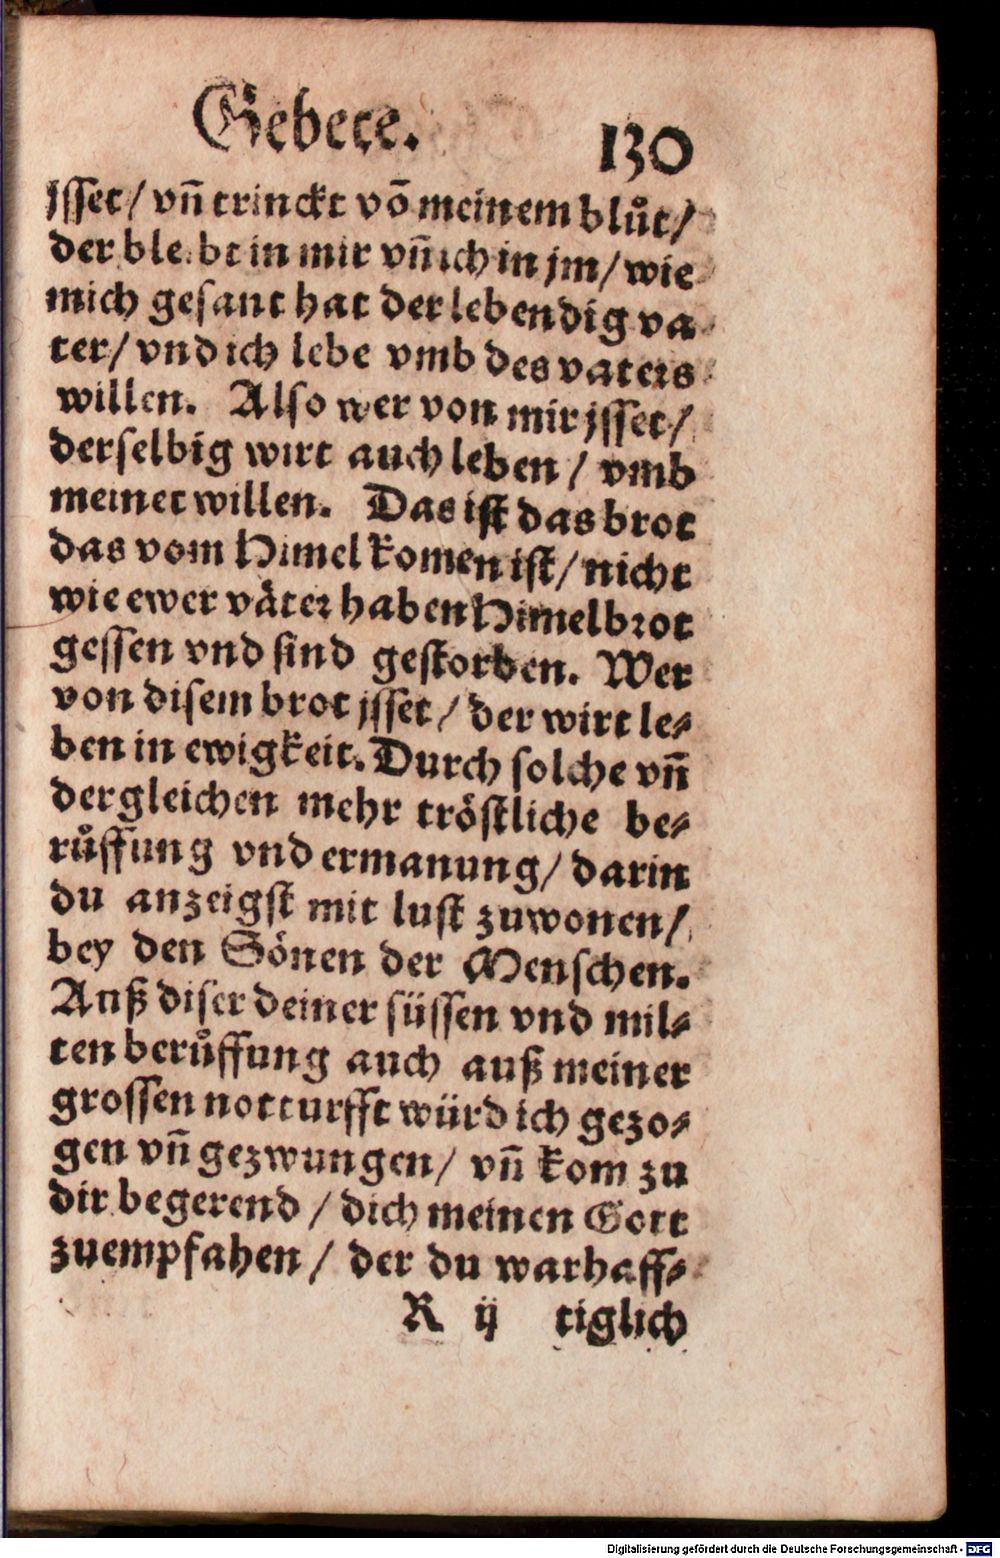 Gebete. 130
jsset / vñ trinckt võ meinem blůt /
der bleibt in mir vñ ich in jm / wie
mich gesant hat der lebendig va
ter / vnd ich lebe vmb des vaters
willen. Also wer von mir jsset /
derselbig wirt auch leben / vmb
meinet willen. Das ist das brot
das vom Himel komen ist / nicht
wie ewer väter haben Himelbrot
gessen vnd sind gestorben. Wer
von disem brot jsset / der wirt le⸗
ben in ewigkeit. Durch solche vñ
dergleichen mehr tröstliche be⸗
růffung vnd ermanung / darin
du anzeigst mit lust zuwonen /
bey den Sönen der Menschen.
Auß diser deiner süssen vnd mil⸗
ten berůffung auch auß meiner
grossen notturfft würd ich gezo⸗
gen vñ gezwungen / vñ kom zu
dir begerend / dich meinen Gott
zuempfahen / der du warhaff⸗
R ij tiglich
Digitalisierung gefördert durch die Deutsche Forschungsgemeinschaft - DFG